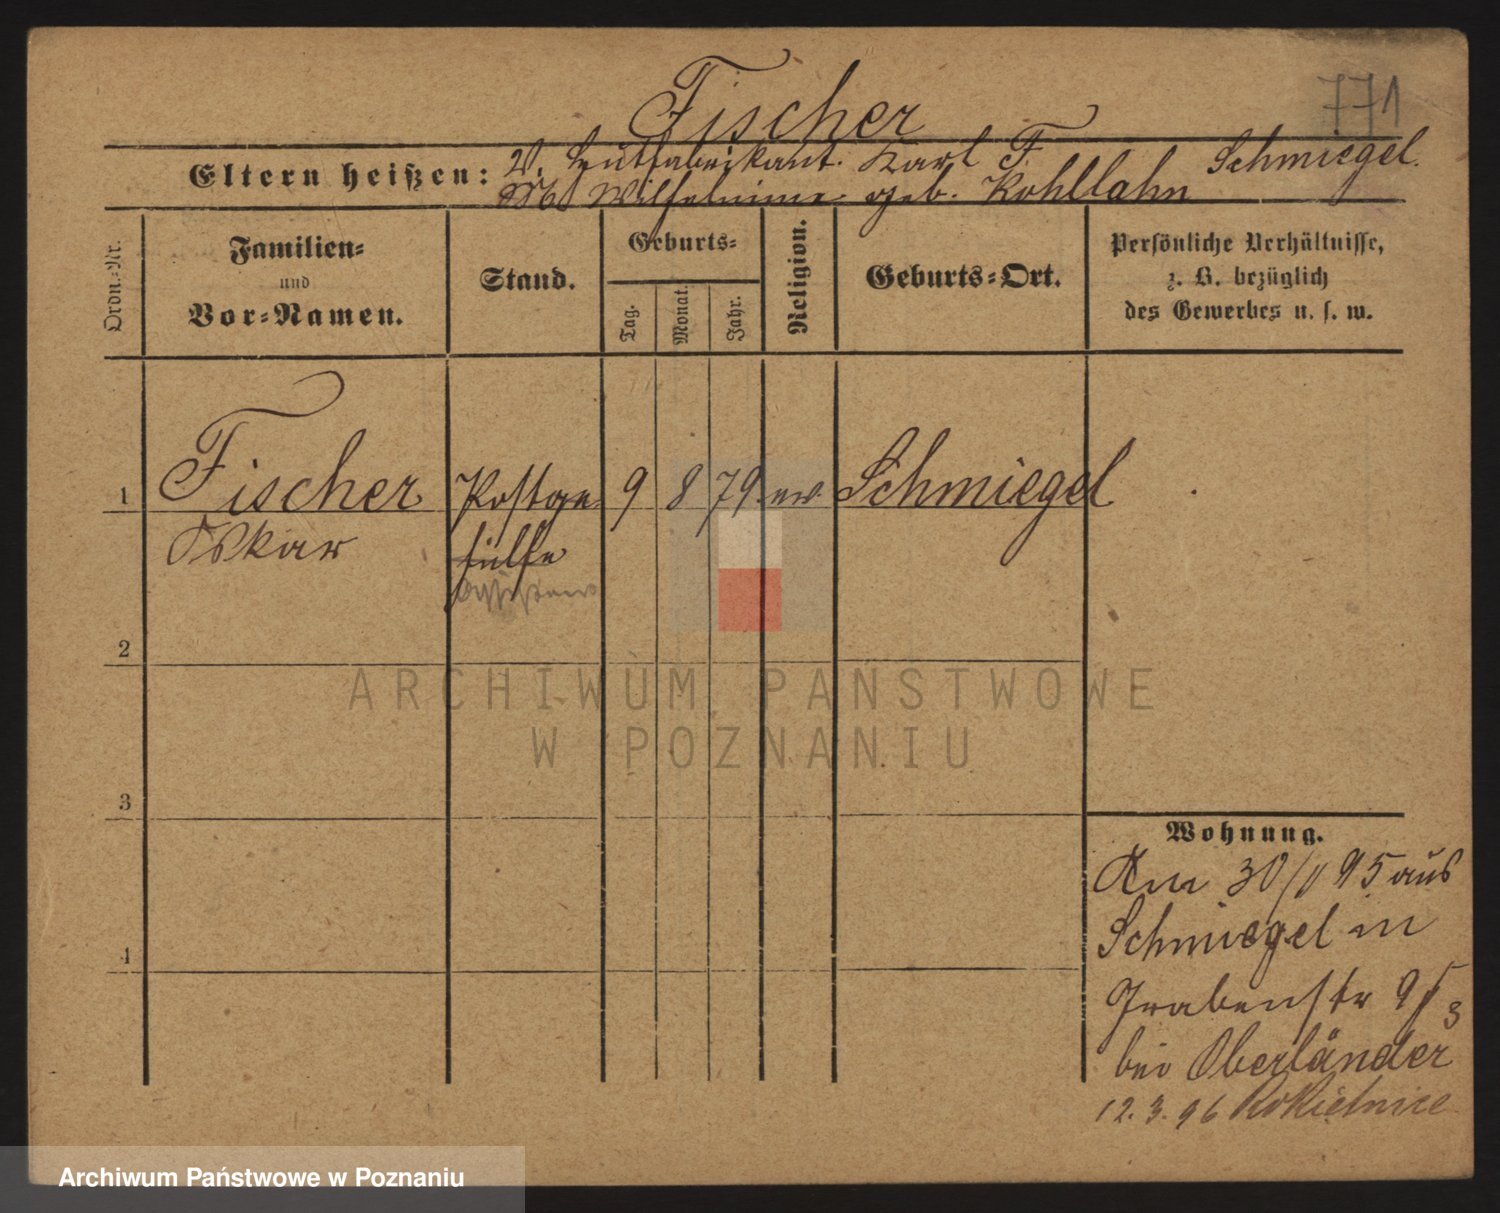 771
Fischer
Eltern heißen: V. Hutfabrikant. Karl F. Schmiegel.
Wilhelmine geb. Kohllahn
Ordn.-Nr.
Familien-
und
Vor-Namen.
Stand.
Geburts-
Tag.
Monat.
Jahr.
Religion.
Geburts-Ort.
Persönliche Verhältnisse,
z. B. bezüglich
des Gewerbes u. s. w.
1 Fischer Postge 9 8 79. ev. Schmiegel
Oskar hülfe
Assistent
2
3
4
ARCHIWUM PAŃSTWOWE
W POZNANIU
Wohnung.
Am 30/ 95 aus
Schmiegel in
Grabenstr 9 3
bei Oberländer
12. 3. 96 Rokietnice
Archiwum Państwowe w Poznaniu